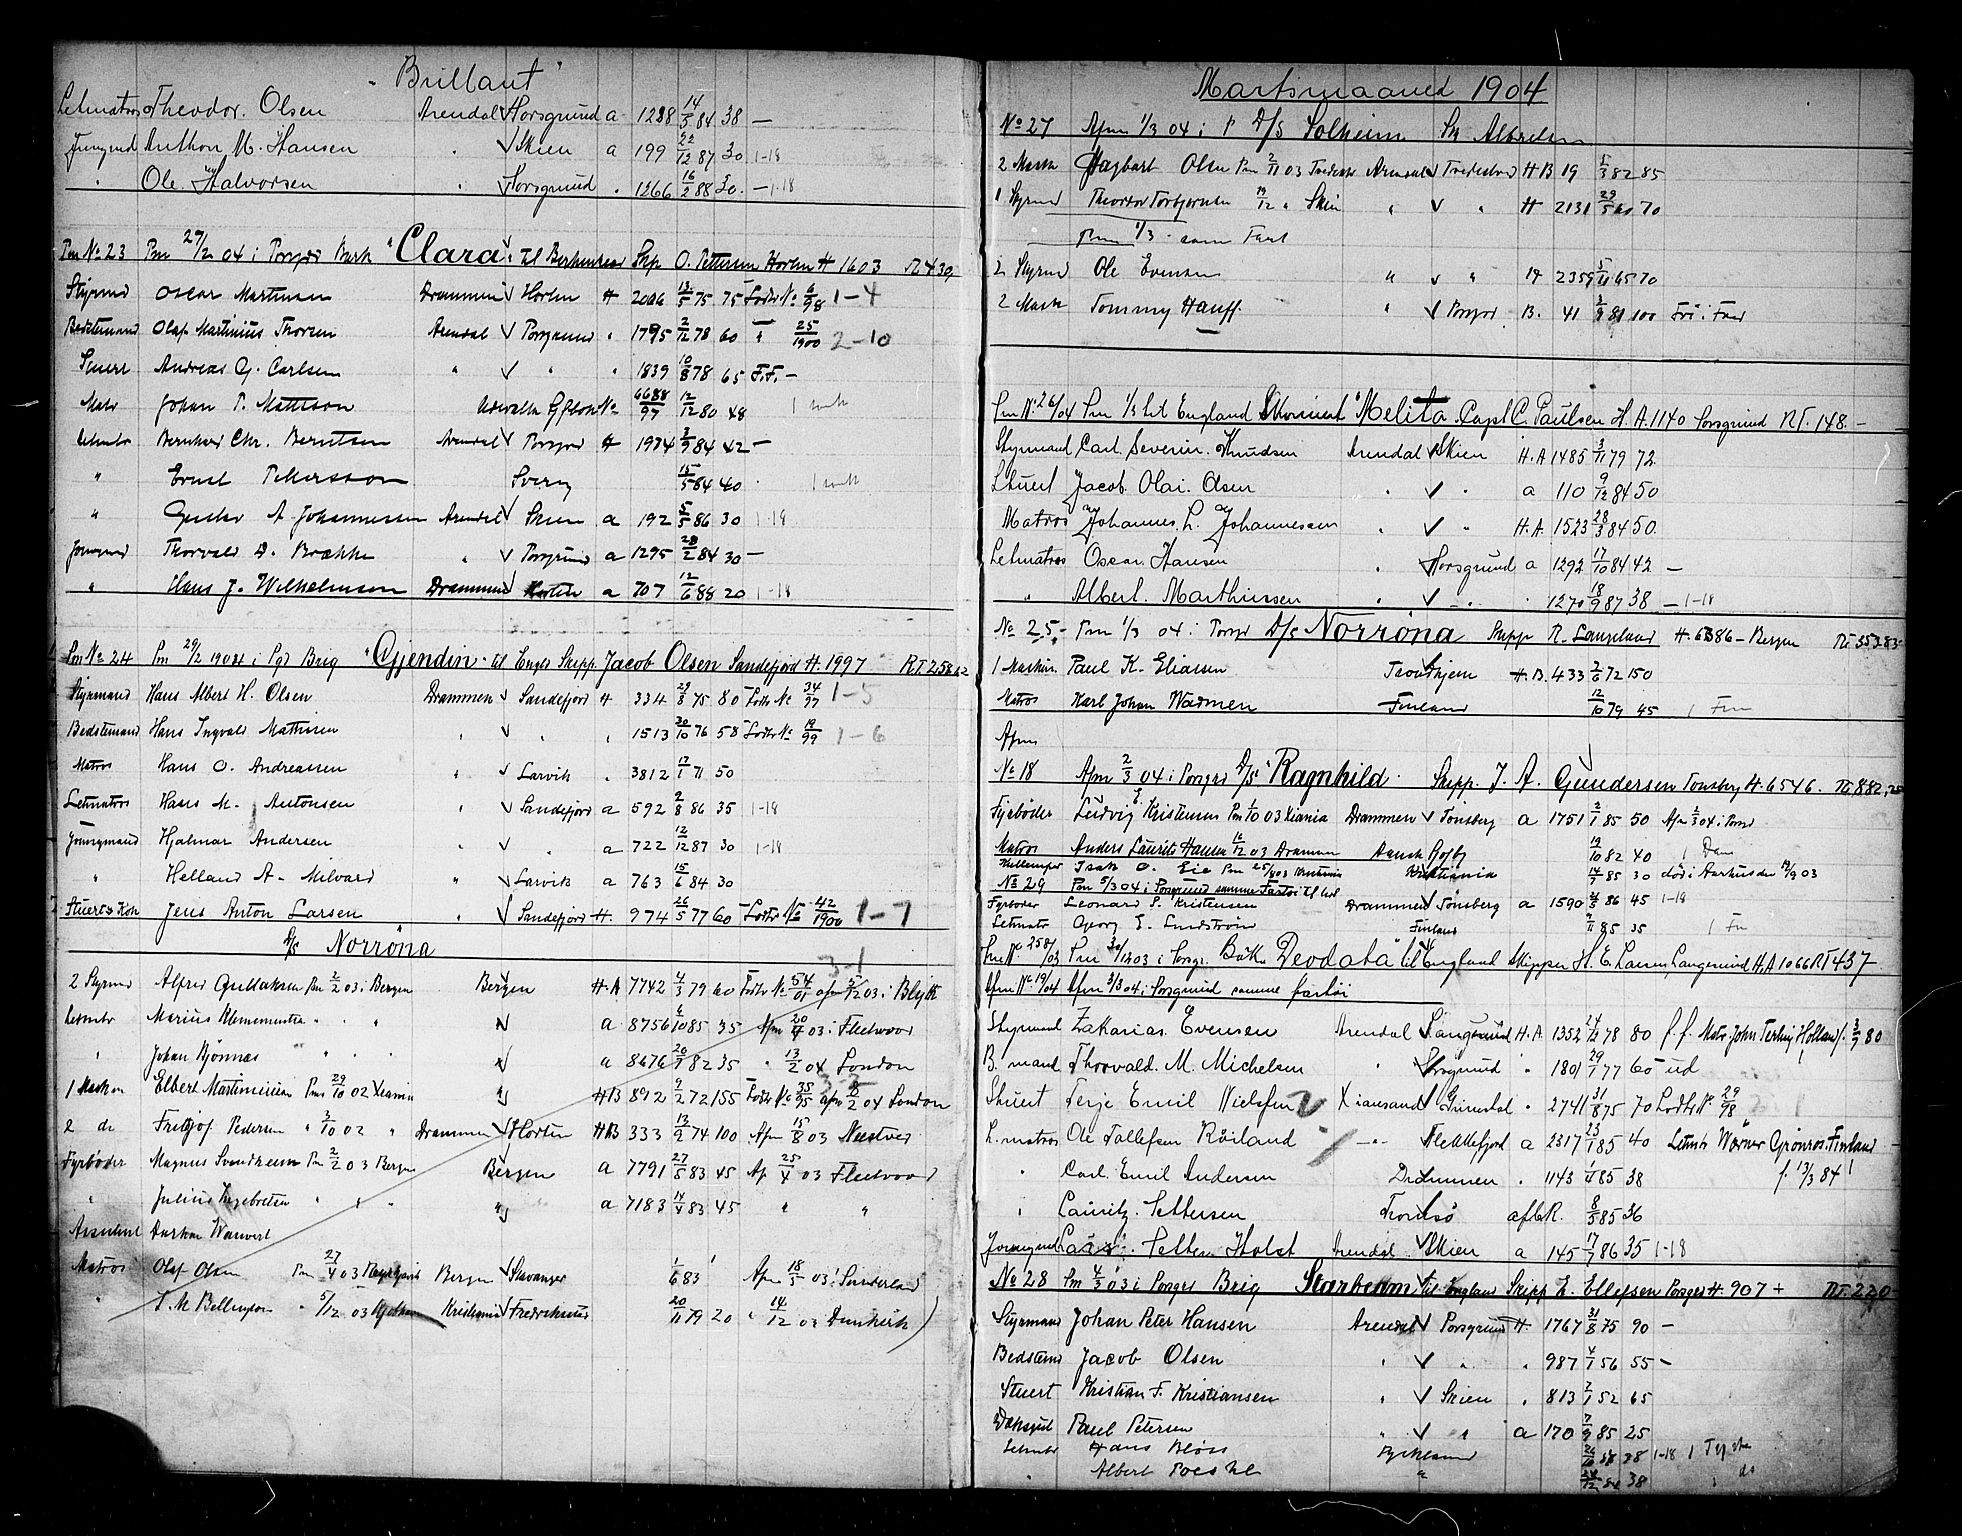 "Brillant"
Letmatros Theodor. Olsen Arendal Porsgrund a 1288 14/5 84 38 —
Jungmd Anthon M. Hansen " Skien a 199 22/12 87 30 1-18
" Ole Halvorsen " Porsgrund " 1266 16/2 88 30. — 1-18
Pm No 23 Pm 29/2 04 i Porsgr Bark "Clara" til Skp. O. Pettersen Horten H 1603 R 430
Styrmd Oscar Martinsen Drammen Horten H 2066 13/5 75 75 Lods No 6/98 1-4
Bedstemand Olaf Martinius Thorsen Arendal Porsgrund " 1795 2/12 78 60 " 25/1900 2-10
Stuert Andreas G. Carlsen " " " 1839 10/8 78 65 F.F. —
Matr Johan P. Mattison No 6688/97 12/12 80 48
Letmtr Bernhard Chr. Berntsen Arendal Porsgrd H 1974 3/9 84 42 —
" Ernst Petersson Sverig 15/5 84 40
" Gustav A Johannessen Arendal Skien a 192 5/5 86 30 1-18
Jungmd Thorvald D. Brække " Porsgrund a 1295 28/2 84 30 —
" Hans J. Wilhelmsen Drammen Horten a 707 12/6 88 20 1-18
Pm No 24 Pm 29/2 1904 i Pgr Brig "Gjendin" til Engld Skipp. Jacob Olsen Sandefjord H. 1997 RT. 258.62
Styrmand Hans Albert H. Olsen Drammen Sandefjord H 334 29/8 75 80 Lods No 34/97 1-5
Bedstemand Hans Ingvald Mathisen " " " 1513 20/10 76 58 Lods No 19/99 1-6
Matros Hans O. Andreassen " Larvik " 3812 12/1 71 50
Letmatros Hans M. Antonsen " Sandefjord a 592 2/8 86 35 1-18
Jungmand Hjalmar Andersen " " a 722 12/12 87 30 1-18
" Helland A. Milvard " Larvik a 763 15/6 84 30
Stuert & Kok Jens Anton Larsen " Sandefjord H. 974 26/5 77 60 Lods No 42/1900 1-7
D/s Norröna
3-1
2 Styrmd Alfred Gullaksen Pm 2/2 03 i Bergen Bergen H.A 7742 4/3 79 60 Lods No 54/01 afm 5/12 03 i Blyth
Letmtr Marius Klementsen " " " " a 8756 6/10 85 35 Afm 20/4 03 i Fleetwood
" Johan Björnnes " " " " a 8676 20/9 82 35 " 13/2 04 London
3-2
1 Maskin Elbert Martiniusen Pm 29/10 02 Xiania " HB 892 9/2 72 155 Lods No 35/95 afm 8/2 04 London
2 do Fritjof Pedersen " 3/10 02 " Drammen Horten HB 333 13/9 74 100 Afm 15/8 03
Fyrböder Magnus Sundheim Pm 2/2 03 Bergen Bergen a 7791 27/5 83 45 Af 25/4 03 Fleetwood
" Julius Ingebretsen " " " " a 7183 14/4 83 45 " "
Assistent
Matros Olaf Olsen Pm 27/4 03 Bergen Stavanger 1/6 83 Afm 18/5 03 i Sunderland
" " 5/12 03 Kristiania Fredrikstad 20/11 79 20 " 14/12 03 Dunkirk
Martsmaaned 1904
No 27 Afm 1/3 04 i P D/s Solheim Sk
2 Mask Hagbart Olsen Pm 2/11 03 Arendal Tvedestrd H B 19 5/3 82 85
1 Styrmd Theodor Torbjörnsen 19/12 " Skien " " H 2131 29/5 60 70
Pm 1/3 som Fast
2 Styrmd Ole Evensen " " H 2359 5/11 65 70
2 Mask Tommy Hauff. " Porsgrd B. 41 2/9 81 100
Pm No 26/04 Pm 1/3 til England Skonnert "Melita" Capt C. Paulsen H. A. 1140 Porsgrund RT. 148. —
Styrmand Carl Severin. Knudsen Arendal Skien H.A 1485 3/11 79 72.
Stuert Jacob Olai. Olsen " " a 110 9/12 84 50
Matros Johannes. L. Johannessen " " H.A. 1523 28/3 84 50.
Letmatros Oscar. Hansen " Porsgrund a 1292 17/10 84 42 —
" Albert. Marthinsen " " " 1270 18/9 87 38 — 1-18
No 25 — Pm 1/3 04 i Porsgr D/s Norröna Skipp R. Langeland H. 6386 — Bergen RT 353.83
1 Maskin. Paul K. Eliassen Trondhjem H.B. 433 2/6 72 150
Matros Karl Johan Wadmen Finland 12/10 79 45 1 Fin
Afm
No 18 Afm 2/3 04 i Porsgrd D/s "Ragnhild" Skipp. J. A. Gundersen Tönsberg H. 6546. RT. 882,
Fyrböder Ludvig E. Kristensen Pm 1/10 03 Xiania Drammen Tönsberg a 1751 2/1 85 50 Afm 2/3 04 i Porsgrd
Matros Anders Laurits Hansen 16/12 03 Drammen Dansk 19/10 82 40 1 Dan
Isak O. Eie Pm 25/4 03 Kristiania Kristiania 14/7 85 30 död i Aarhus den /9 03
No 29 Pm 5/3 04 i Porsgrund samme Fartöi til
Fyrböder Leonard S. Kristensen Drammen Tönsberg a 1590 2/5 86 45 1-18
Letmatr Georg E. Lundström Finland 9/11 85 35 1 Fn
Pm No 258/03 Pm 30/12 03 i Porsgr. Bark. Deodata til England Skipper H. E. Larsen, Langesund H.A 1066 RT 437
Afm No 19/04 Afm 3/3 04 i Porsgrund samme fartöi
Styrmand Zakarias. Evensen Arendal Langesund H.A. 1352 24/12 78 80 f. f. Matr John Terling Holland f. 3/9 80
B. mand Thorvald. M. Michelsen " Porsgrund " 1801 29/1 77 60 ud
Stuert Terje Emil Nielsen Xiansand Grimstad " 2741 31/8 75 70 Lods No. 29/98
L. matros Ole Tallefsen Röiland " Flekkefjord a 2317 23/1 85 40 Letmtr Werner Grönros. Finland
" Carl. Emil Andersen Drammen " 1143 1/4 85 38 f. 13/3 84
" Lauritz. Pettersen Tromsö afl.R. 8/5 85 36
Jungmd Holst Arendal Skien a 145 17/7 86 35 1-18
No 28 Pm 4/3 03 i Porsgrd Brig Starbeam til England Skipp L. Ellefsen Porsgrd H. 907 + RT. 220
Styrmand Johan Peter Hansen Arendal Porsgrund H. 1767 31/8 75 90 —
Bedstemd Jacob Olsen " " " 987 4/1 56 55 —
Stuert Kristian F. Kristiansen " Skien " 813 2/1 52 65
Dæksgut Paul Petersen " " a 170 7/9 85 25
Letmtr Hans Blöss Tyskland 38 1-18 1 Tyske
" Albert " 24/12 84 38 " do